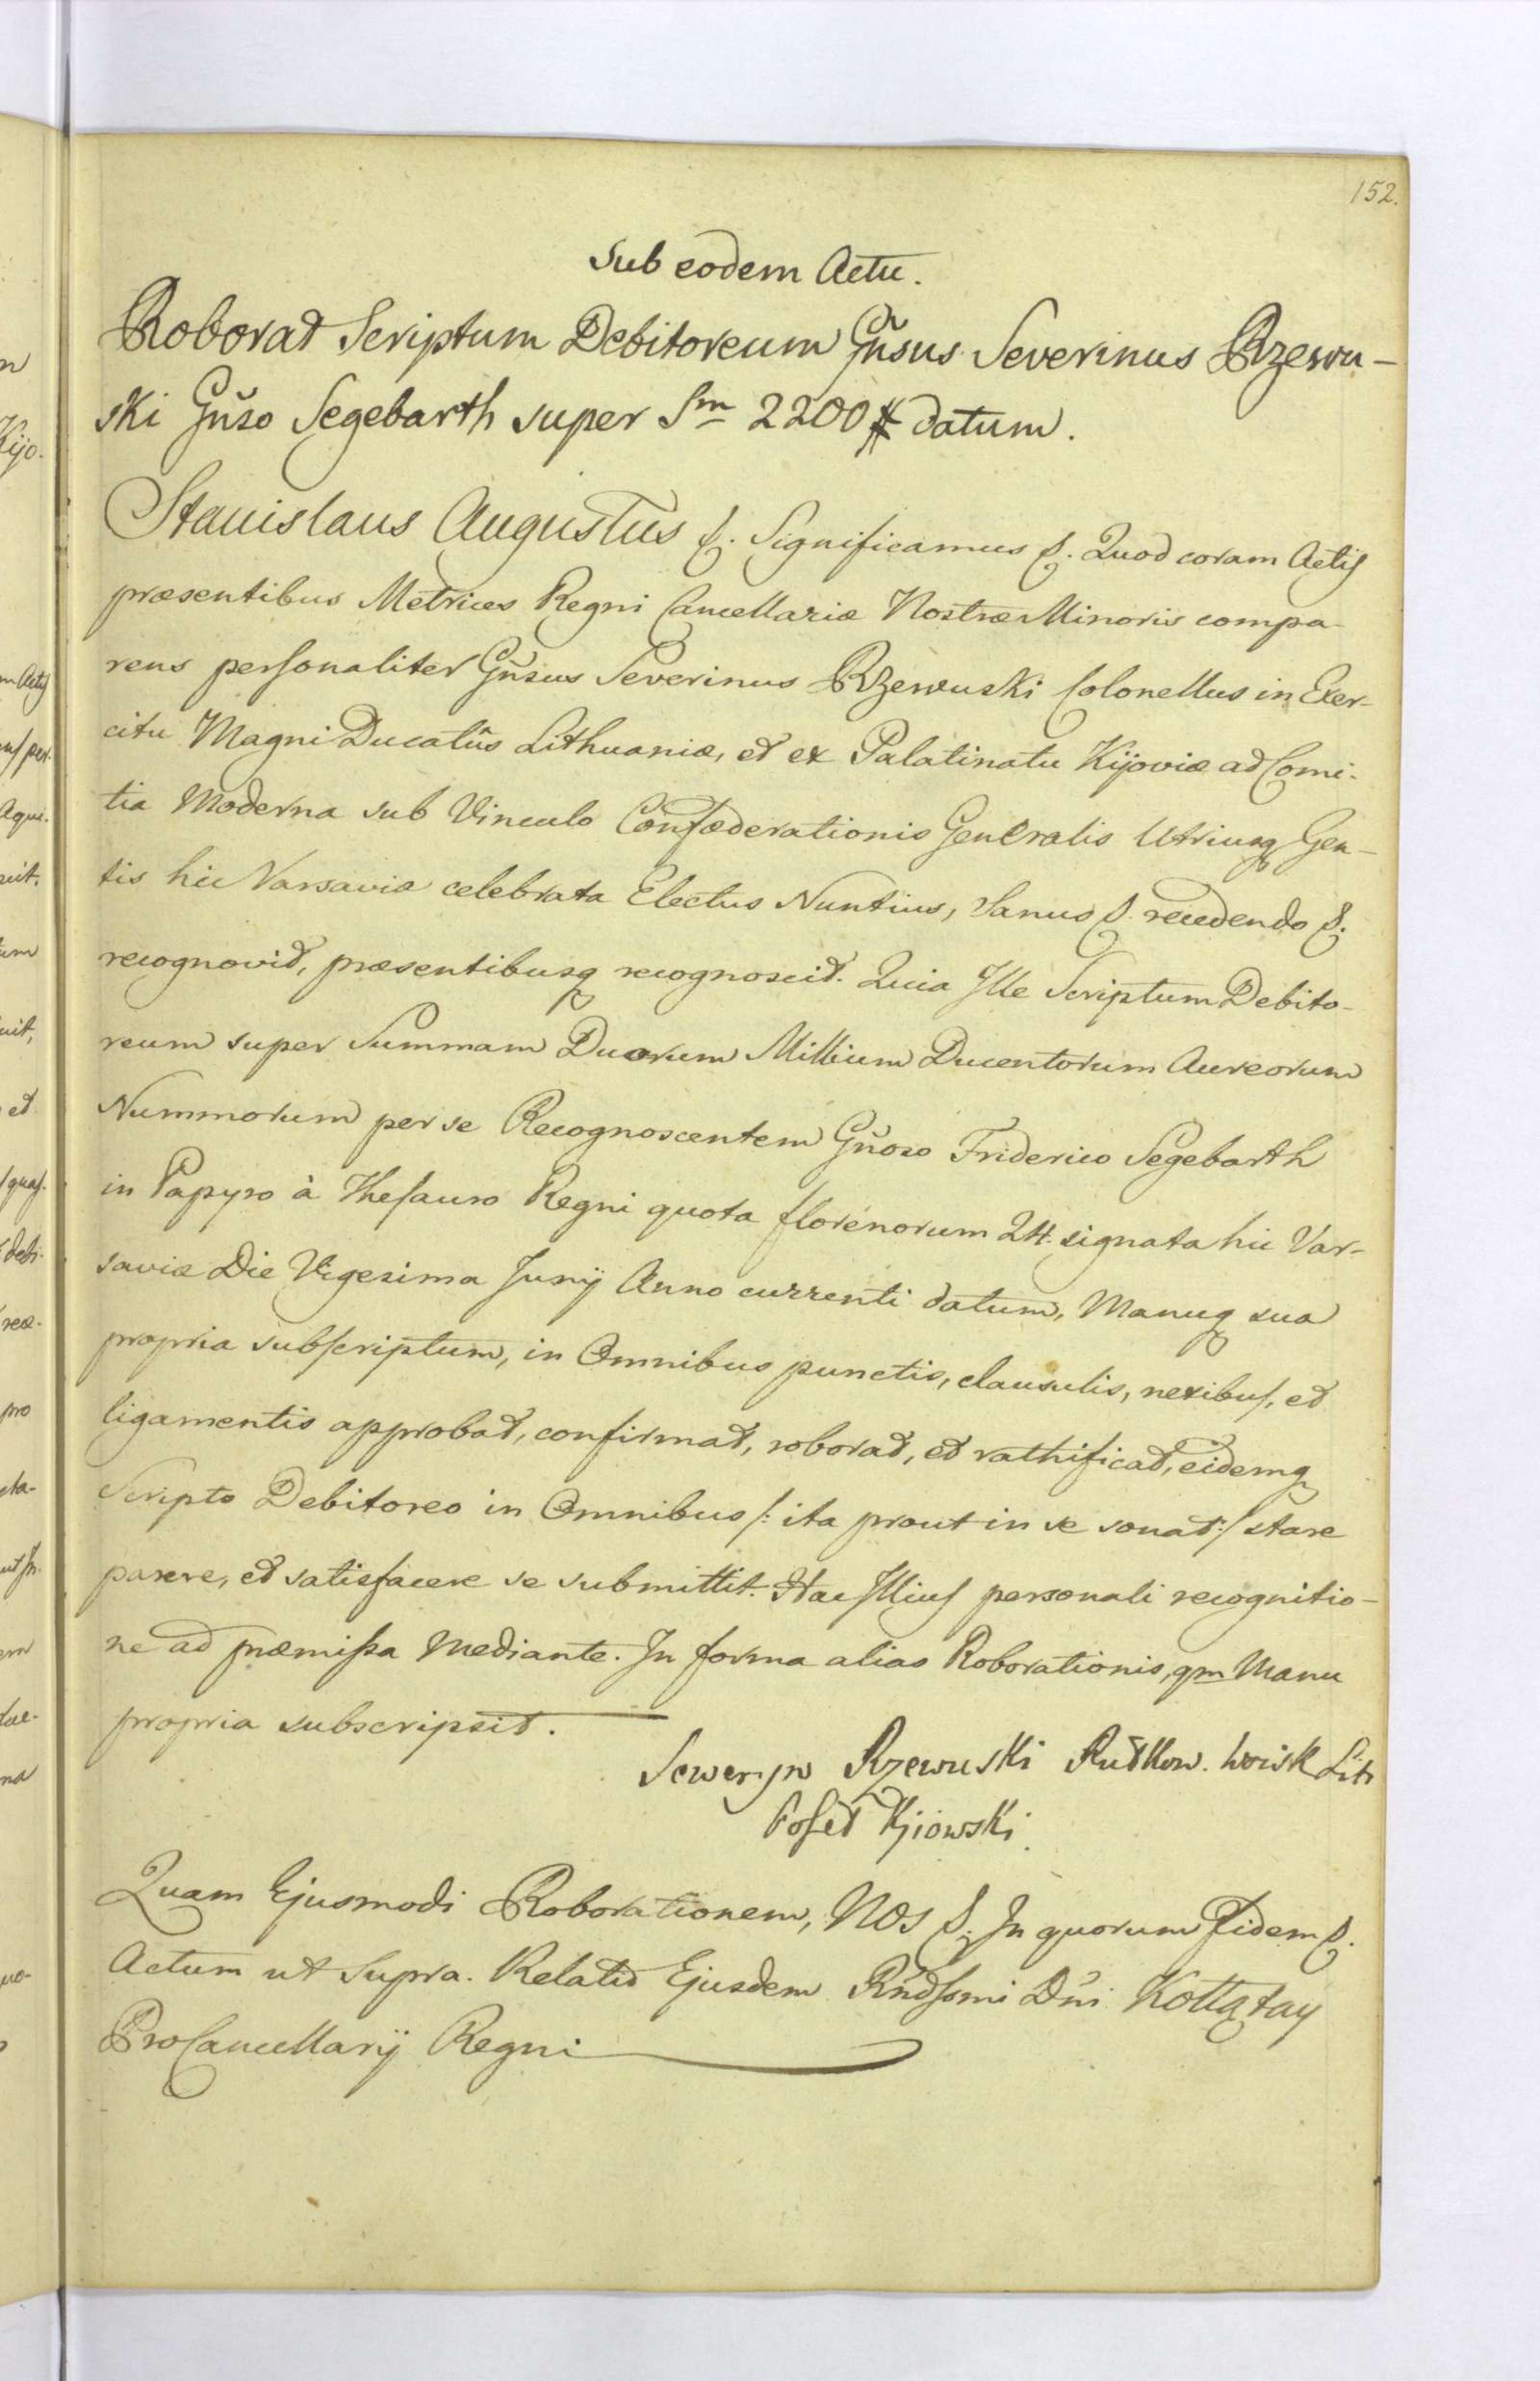 152.
Sub eodem Actu.
Roborat Scriptum Debitoreum Gnsus Severinus Rzewu-
ski Gnso Segebarth super Sm 2200 # datum.
Stanislaus Augustus &. Significamus &. Quod coram Actis
præsentibus Metrices Regni Cancellariæ Nostræ Minoris compa-
rens personaliter Gnsus Severinus Rzewuski Colonellus in Exer-
citu Magni Ducatûs Lithuaniæ, et ex Palatinatu Kijoviæ ad Comi-
tia Moderna sub Vinculo Confæderationis Generalis Utriusq Gen-
tis hic Varsaviæ celebrata Electus Nuntius, Sanus &. recedendo &.
recognovit, præsentibusq recognoscit. Quia Ille Scriptum Debito-
reum super Summam Duorum Millium Ducentorum Aureorum
Nummorum per se Recognoscentem Gnoso Friderico Segebarth
in Papyro à Thesauro Regni quota florenorum 24. signata hic Var-
saviæ Die Vigesima Junÿ Anno currenti datum, Manuq sua
propria subscriptum, in Omnibus punctis, clausulis, nexibus, et
ligamentis approbat, confirmat, roborat, et rathificat, eidemq
Scripto Debitoreo in Omnibus /: ita prout in se sonat :/ stare
parere, et satisfacere se submittit. Hac Illius personali recognitio-
ne ad præmissa Mediante. In forma alias Roborationis, qm Manu
propria subscripsit.
Seweryn Rzewuski Pułkow. Woisk Lit
Poseł Kjiowski
Quam Ejusmodi Roborationem, NOS &. In quorum Fidem &.
Actum ut Supra. Relatio Ejusdem Rndssmi Dni Kołłątay
ProCancellarÿ Regni